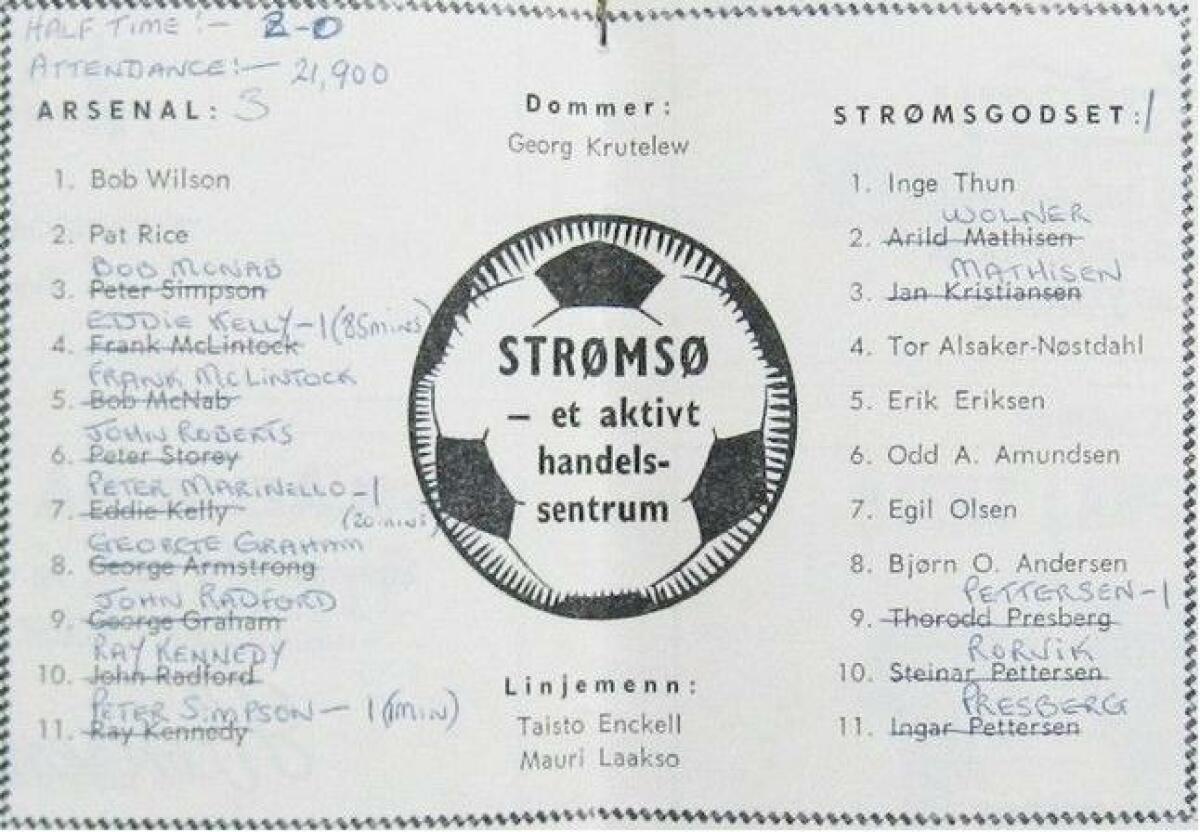 HALF TIME:- 2-0
ATTENDANCE:- 21,900
ARSENAL: 3
1. Bob Wilson
2. Pat Rice
BOB MCNAB
3. Peter Simpson
EDDIE KELLY-1 (85 mins)
4. Frank McLintock
FRANK MCLINTOCK
5. Bob McNab
JOHN ROBERTS
6. Peter Storey
PETER MARINELLO-1
(20 mins)
7. Eddie Kelly
GEORGE GRAHAM
8. George Armstrong
JOHN RADFORD
9. George Graham
RAY KENNEDY
10. John Radford
PETER SIMPSON- 1 (1MIN)
11. Ray Kennedy
Dommer:
Georg Krutelew
STRØMSØ
– et aktivt
handels-
sentrum
Linjemenn:
Taisto Enckell
Mauri Laakso
STRØMSGODSET: 1
1. Inge Thun
WOLNER
2. Arild Mathisen
MATHISEN
3. Jan Kristiansen
4. Tor Alsaker-Nøstdahl
5. Erik Eriksen
6. Odd A. Amundsen
7. Egil Olsen
8. Bjørn O. Andersen
PETTERSEN-1
9. Thorodd Presberg
RORVIK
10. Steinar Pettersen
PRESBERG
11. Ingar Pettersen